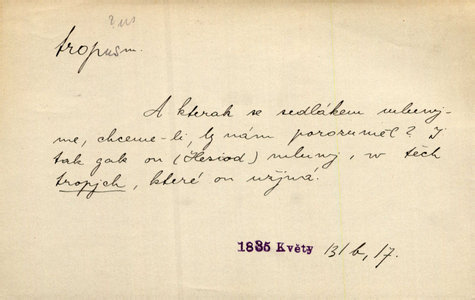 tropus m.
A kterak se sedlákem mluvj-
me, chceme-li, by nám porozuměl? I
tak gak on (Hesiod) mluvj, w těch
tropjch, které on užjwá.
1835 Květy 131 b, 17.